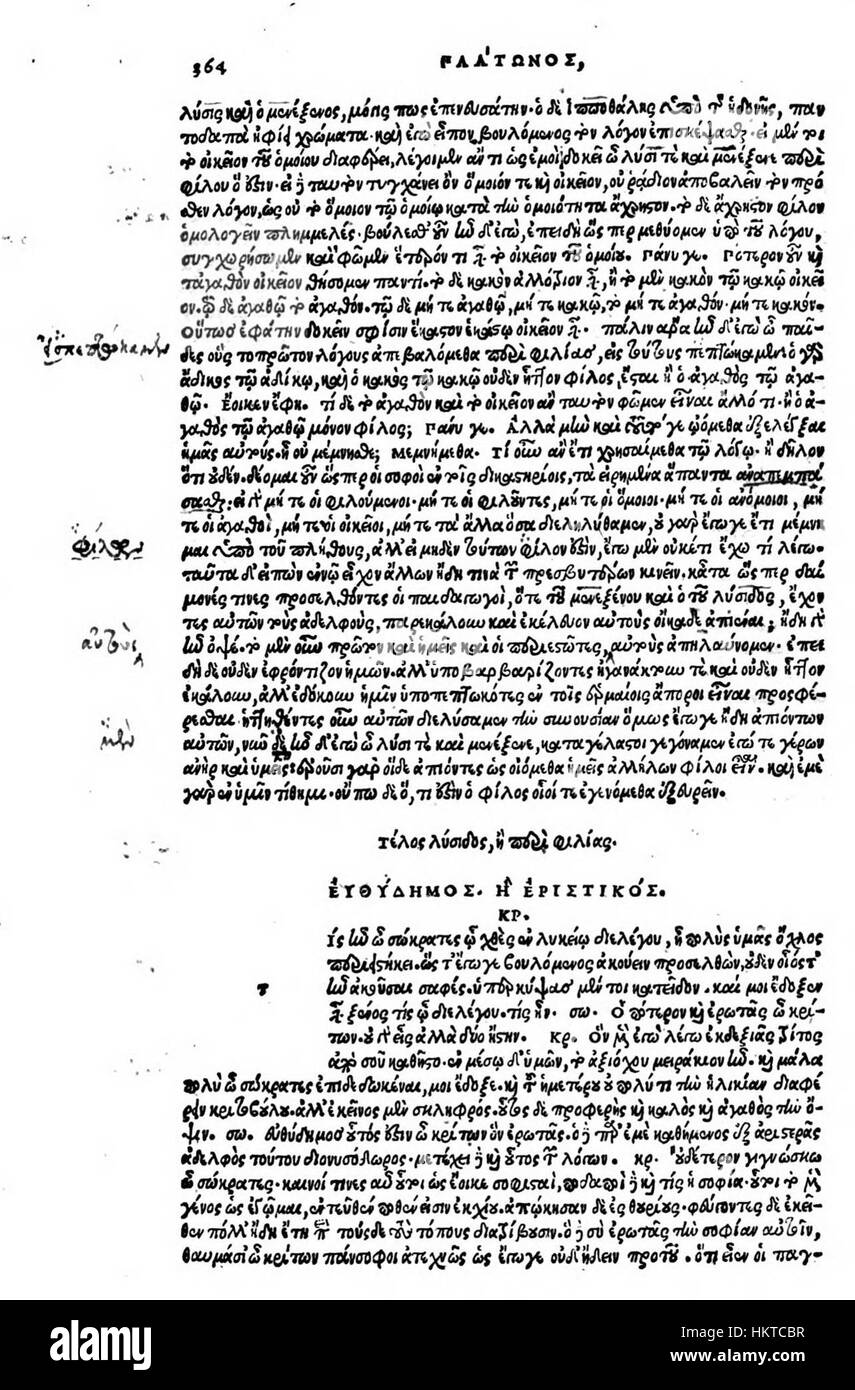 364 ΠΛΑΤΩΝΟΣ,
λύσις καὶ ὁ μενέξενος, μόγις πως ἐπενευσάτην· ὁ δὲ ἱπποθάλης ὑπὸ τῆς ἡδονῆς, παν
τοδαπὰ ἠφίει χρώματα· καὶ ἐγὼ εἶπον βουλόμενος τὸν λόγον ἐπισκέψασθαι· εἰ μέν τι
τὸ οἰκεῖον τοῦ ὁμοίου διαφέρει, λέγοιμεν ἄν τι ὡς ἐμοὶ δοκεῖ ὦ λύσι τε καὶ μενέξενε περὶ
φίλου ὅ ἐστιν· εἰ δὲ ταυτὸν τυγχάνει ὂν ὅμοιόν τε καὶ οἰκεῖον, οὐ ῥάδιον ἀποβαλεῖν τὸν πρό
θεν λόγον, ὡς οὐ τὸ ὅμοιον τῷ ὁμοίῳ κατὰ τὴν ὁμοιότητα ἄχρηστον· τὸ δὲ ἄχρηστον φίλον
ὁμολογεῖν πλημμελές· βούλεσθ' οὖν ἦν δ' ἐγὼ, ἐπειδὴ ὥσπερ μεθύομεν ὑπὸ τοῦ λόγου,
συγχωρήσωμεν καὶ φῶμεν ἕτερόν τι εἶναι τὸ οἰκεῖον τοῦ ὁμοίου. Πάνυ γε. Πότερον οὖν καὶ
τἀγαθὸν οἰκεῖον θήσομεν παντί· τὸ δὲ κακὸν ἀλλότριον εἶναι, ἢ τὸ μὲν κακὸν τῷ κακῷ οἰκεῖ
ον· τῷ δὲ ἀγαθῷ τὸ ἀγαθόν· τῷ δὲ μή τε ἀγαθῷ, μή τε κακῷ, τὸ μή τε ἀγαθόν· μή τε κακόν·
Οὕτως ἐφάτην δοκεῖν σφίσιν ἕκαστον ἑκάστῳ οἰκεῖον εἶναι· πάλιν ἄρα ἦν δ' ἐγὼ ὦ παῖ-
δες οὓς τὸ πρῶτον λόγους ἀπεβαλόμεθα περὶ φιλίας, εἰς τούτους πεπτώκαμεν· ὁ γὰρ
ἄδικος τῷ ἀδίκῳ, καὶ ὁ κακὸς τῷ κακῷ οὐδὲν ἧττον φίλος, ἔσται ἢ ὁ ἀγαθὸς τῷ ἀγα-
θῷ· Ἔοικεν ἔφη. τί δὲ τὸ ἀγαθὸν καὶ τὸ οἰκεῖον ἂν ταυτὸν φῶμεν εἶναι ἄλλό τι ἢ ὁ ἀ-
γαθὸς τῷ ἀγαθῷ μόνον φίλος; Πάνυ γε. Ἀλλὰ μὴν καὶ τοῦτό γε ᾠόμεθα ἐξελέγξαι
ἡμᾶς αὐτούς· ἢ οὐ μέμνησθε; Μεμνήμεθα. Τί οὖν ἂν ἔτι χρησαίμεθα τῷ λόγῳ· ἢ δῆλον
ὅτι οὐδέν· δέομαι οὖν ὥσπερ οἱ σοφοὶ ἐν τοῖς δικαστηρίοις, τὰ εἰρημένα ἅπαντα ἀναπεμπά
σασθαι· εἰ γὰρ μή τε οἱ φιλούμενοι· μή τε οἱ φιλοῦντες, μή τε οἱ ὅμοιοι· μή τε οἱ ἀνόμοιοι, μή
τε οἱ ἀγαθοί, μή τε οἱ οἰκεῖοι, μή τε τὰ ἄλλα ὅσα διεληλύθαμεν, οὐ γὰρ ἔγωγε ἔτι μέμνη
μαι ὑπὸ τοῦ πλήθους, ἀλλ' εἰ μηδὲν τούτων φίλον ἐστίν, ἐγὼ μὲν οὐκέτι ἔχω τί λέγω·
ταῦτα δ' εἰπὼν ἐν νῷ εἶχον ἄλλον ἤδη τινὰ τῶν πρεσβυτέρων κινεῖν· κᾆτα ὥσπερ δαί
μονές τινες προσελθόντες οἱ παιδαγωγοί, ὅ τε τοῦ μενεξένου καὶ ὁ τοῦ λύσιδος, ἔχον
τες αὐτῶν τοὺς ἀδελφοὺς, παρεκάλουν καὶ ἐκέλευον αὐτοὺς οἴκαδε ἀπιέναι; ἤδη γὰρ
ἦν ὀψέ· τὸ μὲν οὖν πρῶτον καὶ ἡμεῖς καὶ οἱ περιεστῶτες, αὐτοὺς ἀπηλαύνομεν· ἐπει
δὴ δὲ οὐδὲν ἐφρόντιζον ἡμῶν· ἀλλ' ὑποβαρβαρίζοντες ἠγανάκτουν τε καὶ οὐδὲν ἧττον
ἐκάλουν, ἀλλ' ἐδόκουν ἡμῖν ὑποπεπτωκότες ἐν τοῖς ἑρμαίοις ἄποροι εἶναι προσφέ-
ρεσθαι· ἡττηθέντες οὖν αὐτῶν διελύσαμεν τὴν συνουσίαν· ὅμως ἔγωγε ἤδη ἀπιόντων
αὐτῶν, νῦν δὲ ἦν δ' ἐγὼ ὦ λύσι τε καὶ μενέξενε, καταγέλαστοι γεγόναμεν ἐγώ τε γέρων
ἀνὴρ καὶ ὑμεῖς· ἐροῦσι γὰρ οἵδε ἀπιόντες ὡς οἰόμεθα ἡμεῖς ἀλλήλων φίλοι εἶναι· καὶ ἐμὲ
γὰρ ἐν ὑμῖν τίθημι· οὔπω δὲ ὅ, τι ἐστὶν ὁ φίλος οἷοί τε ἐγενόμεθα ἐξευρεῖν.
Τέλος λύσιδος, ἢ περὶ φιλίας.
ΕΥΘΥΔΗΜΟΣ. Ἢ ΕΡΙΣΤΙΚΟΣ.
ΚΡ.
τ
ίς ἦν ὦ σώκρατες ᾧ χθὲς ἐν λυκείῳ διελέγου, ἦ πολὺς ὑμᾶς ὄχλος
περιειστήκει· ὥστ' ἔγωγε βουλόμενος ἀκούειν προσελθὼν, οὐδὲν οἷός τ'
ἦν ἀκοῦσαι σαφές· ὑπερκύψας μέντοι κατεῖδον· καί μοι ἔδοξεν
εἶναι ξένος τις ᾧ διελέγου· τίς ἦν· σω. Ὁ πότερον καὶ ἐρωτᾷς ὦ κρί-
των· οὐ γὰρ εἷς ἀλλὰ δύο ἤστην. Κρ. Ὃν μὲν ἐγὼ λέγω ἐκ δεξιᾶς τρίτος
ἀπὸ σοῦ καθῆστο· ἐν μέσῳ δ' ὑμῶν, τὸ ἀξιόχου μειράκιον ἦν· καὶ μάλα
πολὺ ὦ σώκρατες ἐπιδεδωκέναι, μοι ἔδοξε· καὶ τοῦ ἡμετέρου οὐ πολύ τι τὴν ἡλικίαν διαφέ
ρειν κριτοβούλου· ἀλλ' ἐκεῖνος μὲν σκληφρός· οὗτος δὲ προφερὴς καὶ καλὸς καὶ ἀγαθὸς τὴν ὄ-
ψιν· σω. εὐθύδημος οὗτός ἐστιν ὦ κρίτων ὃν ἐρωτᾷς· ὁ δὲ παρ' ἐμὲ καθήμενος ἐξ ἀριστερᾶς
ἀδελφὸς τούτου διονυσόδωρος· μετέχει δὲ καὶ οὗτος τῶν λόγων. κρ. Οὐδέτερον γιγνώσκω
ὦ σώκρατες· καινοί τινες αὖ οὗτοι ὡς ἔοικε σοφισταί, ποδαποὶ δὲ καὶ τίς ἡ σοφία· οὗτοι τὸ μὲν
γένος ὡς ἐγᾦμαι, ἐντεῦθέν ποθέν εἰσιν ἐκ χίου· ἀπῴκησαν δὲ ἐς θουρίους· φεύγοντες δὲ ἐκεῖ-
θεν πόλλ' ἤδη ἔτη περὶ τούσδε τοὺς τόπους διατρίβουσιν· ὃ δὲ σὺ ἐρωτᾷς τὴν σοφίαν αὐτοῖν,
θαυμασία ὦ κρίτων πάνσοφοι ἀτεχνῶς ὡς ἔγωγε οὐδ' ᾔδειν πρὸ τοῦ, ὅτι εἶεν οἱ παγ-
alamy
Image ID: HKTCBR
www.alamy.com